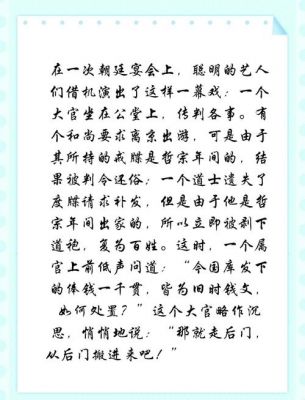 在一次朝廷宴会上，聪明的艺人
们借机演出了这样一幕戏：一个
大官坐在公堂上，传判各事。有
个和尚要求离京出游，可是由于
其所持的戒牒是哲宗年间的，结
果被判令还俗；一个道士遗失了
度牒请求补发，但是由于他是哲
宗年间出家的，所以立即被剥下
道袍，复为百姓。这时，一个属
官上前低声问道：“令国库发下
的俸钱一千贯，皆为旧时钱文，
如何处置？”这个大官略作沉
思，悄悄地说：“那就走后门，
从后门搬进来吧！”